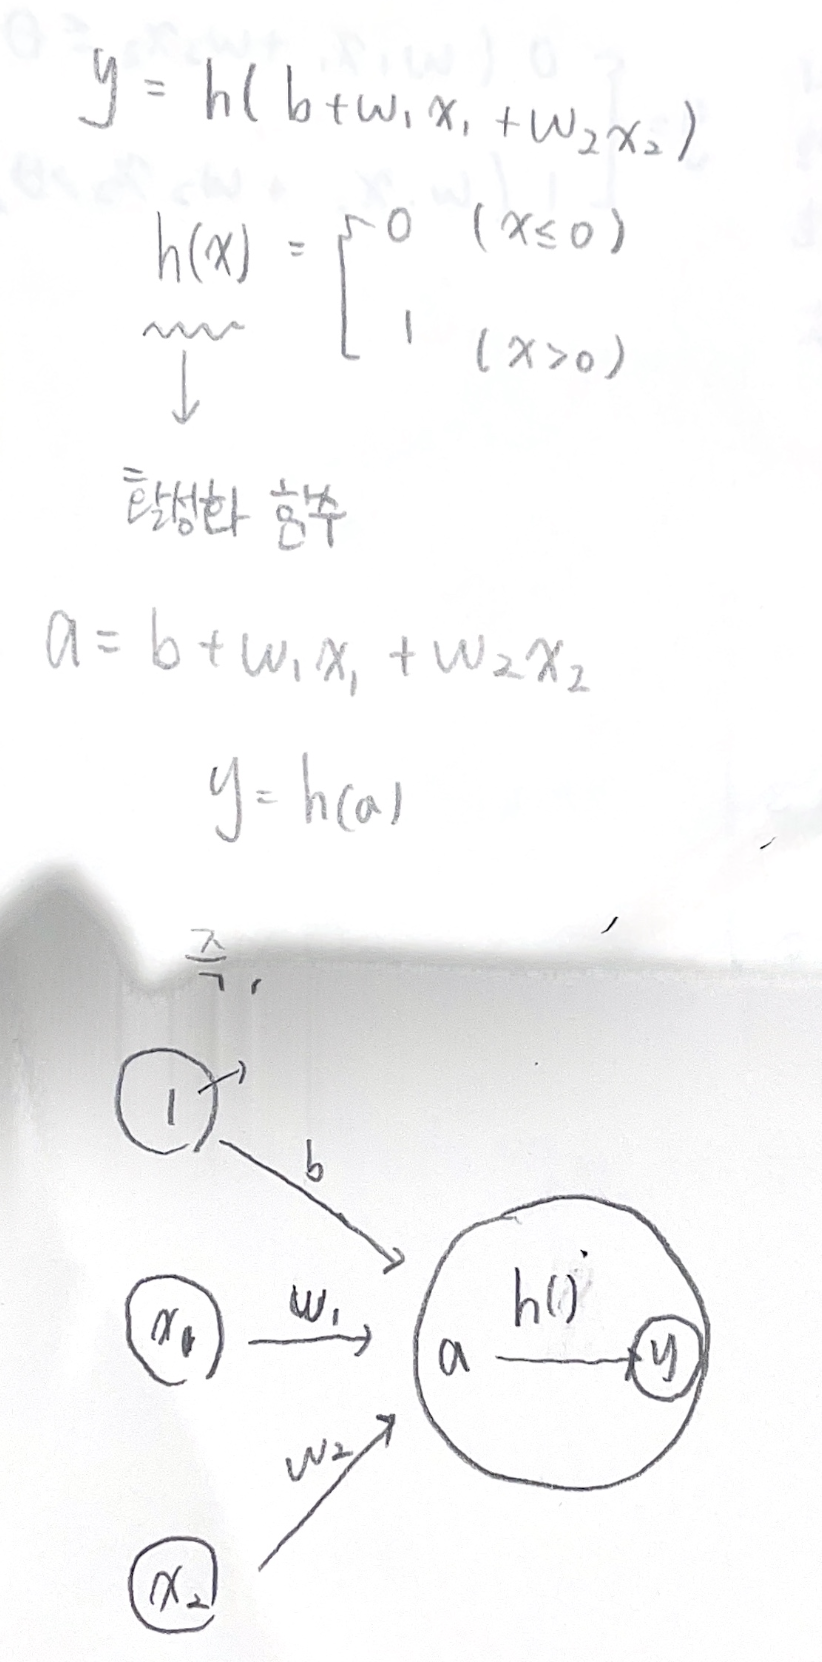 y = h(b+w₁x₁+w₂x₂)
h(x) = { 0 (x≤0)
1 (x>0)
↓
활성화 함수
a = b+w₁x₁+w₂x₂
y = h(a)
즉,
1
b
x₁
w₁
a
h()
y
w₂
x₂